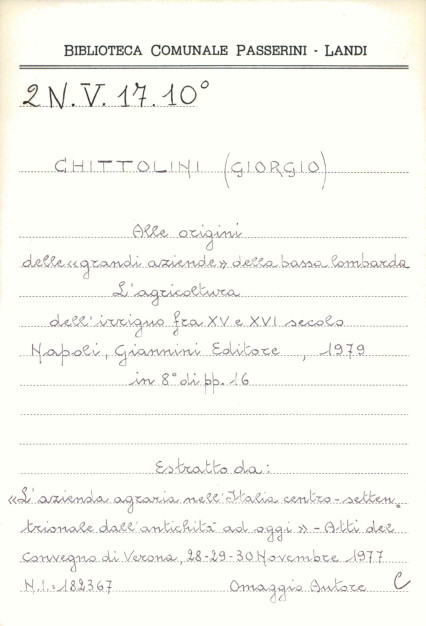 BIBLIOTECA COMUNALE PASSERINI - LANDI
2 N.V. 17. 10°
CHITTOLINI (GIORGIO)
Alle origini
delle «grandi aziende» della bassa lombarda
L'agricoltura
dell'irriguo fra XV e XVI secolo
Napoli, Giannini Editore , 1979
in 8° di pp. 16
Estratto da:
«L'azienda agraria nell'Italia centro-setten=
trionale dall'antichità ad oggi» - Atti del
Convegno di Verona, 28-29-30 Novembre 1977
N.I.=182367 Omaggio Autore C